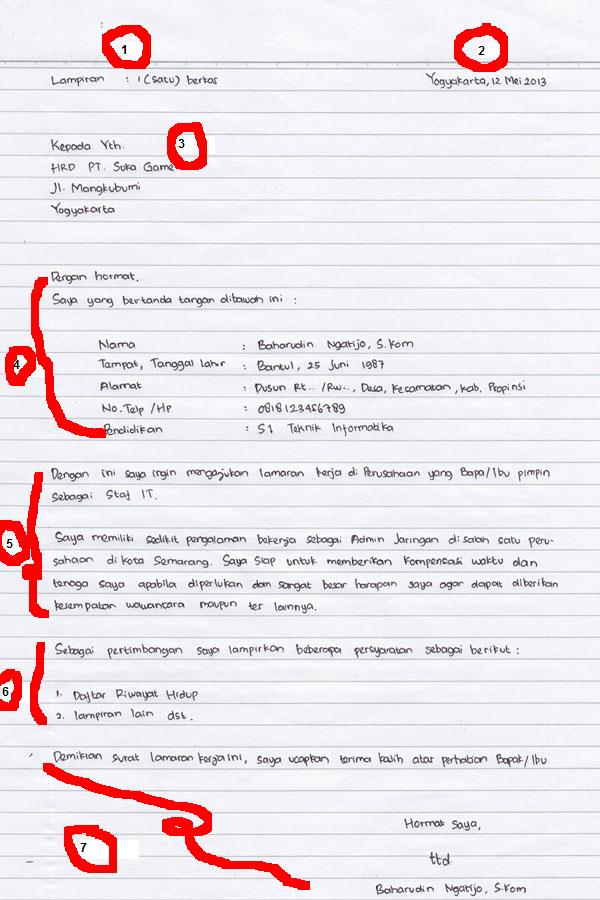 1
2
Lampiran : 1 (satu) berkas
Yogyakarta, 12 Mei 2013
Kepada Yth.
3
HRD PT. Suka Game
Jl. Mangkubumi
Yogyakarta
Dengan hormat,
Saya yang bertanda tangan dibawah ini :
Nama : Baharudin Ngatijo, S.Kom
4
Tempat, Tanggal lahir : Bantul, 25 Juni 1987
Alamat : Dusun Rt.. /Rw.., Desa, Kecamatan, Kab, Propinsi
No. Telp /Hp : 0818123456789
Pendidikan : S1 Teknik Informatika
Dengan ini saya ingin mengajukan lamaran kerja di Perusahaan yang Bapa/Ibu pimpin
sebagai Staf IT.
5
Saya memiliki sedikit pengalaman bekerja sebagai Admin Jaringan di salah satu peru-
sahaan di kota Semarang. Saya siap untuk memberikan kompensasi waktu dan
tenaga saya apabila diperlukan dan sangat besar harapan saya agar dapat diberikan
kesempatan wawancara maupun tes lainnya.
Sebagai pertimbangan saya lampirkan beberapa persyaratan sebagai berikut :
6
1. Daftar Riwayat Hidup
2. lampiran lain dst.
Demikian surat lamaran kerja ini, saya ucapkan terima kasih atas perhatian Bapak/Ibu
Hormat Saya,
7
ttd
Baharudin Ngatijo, S.Kom